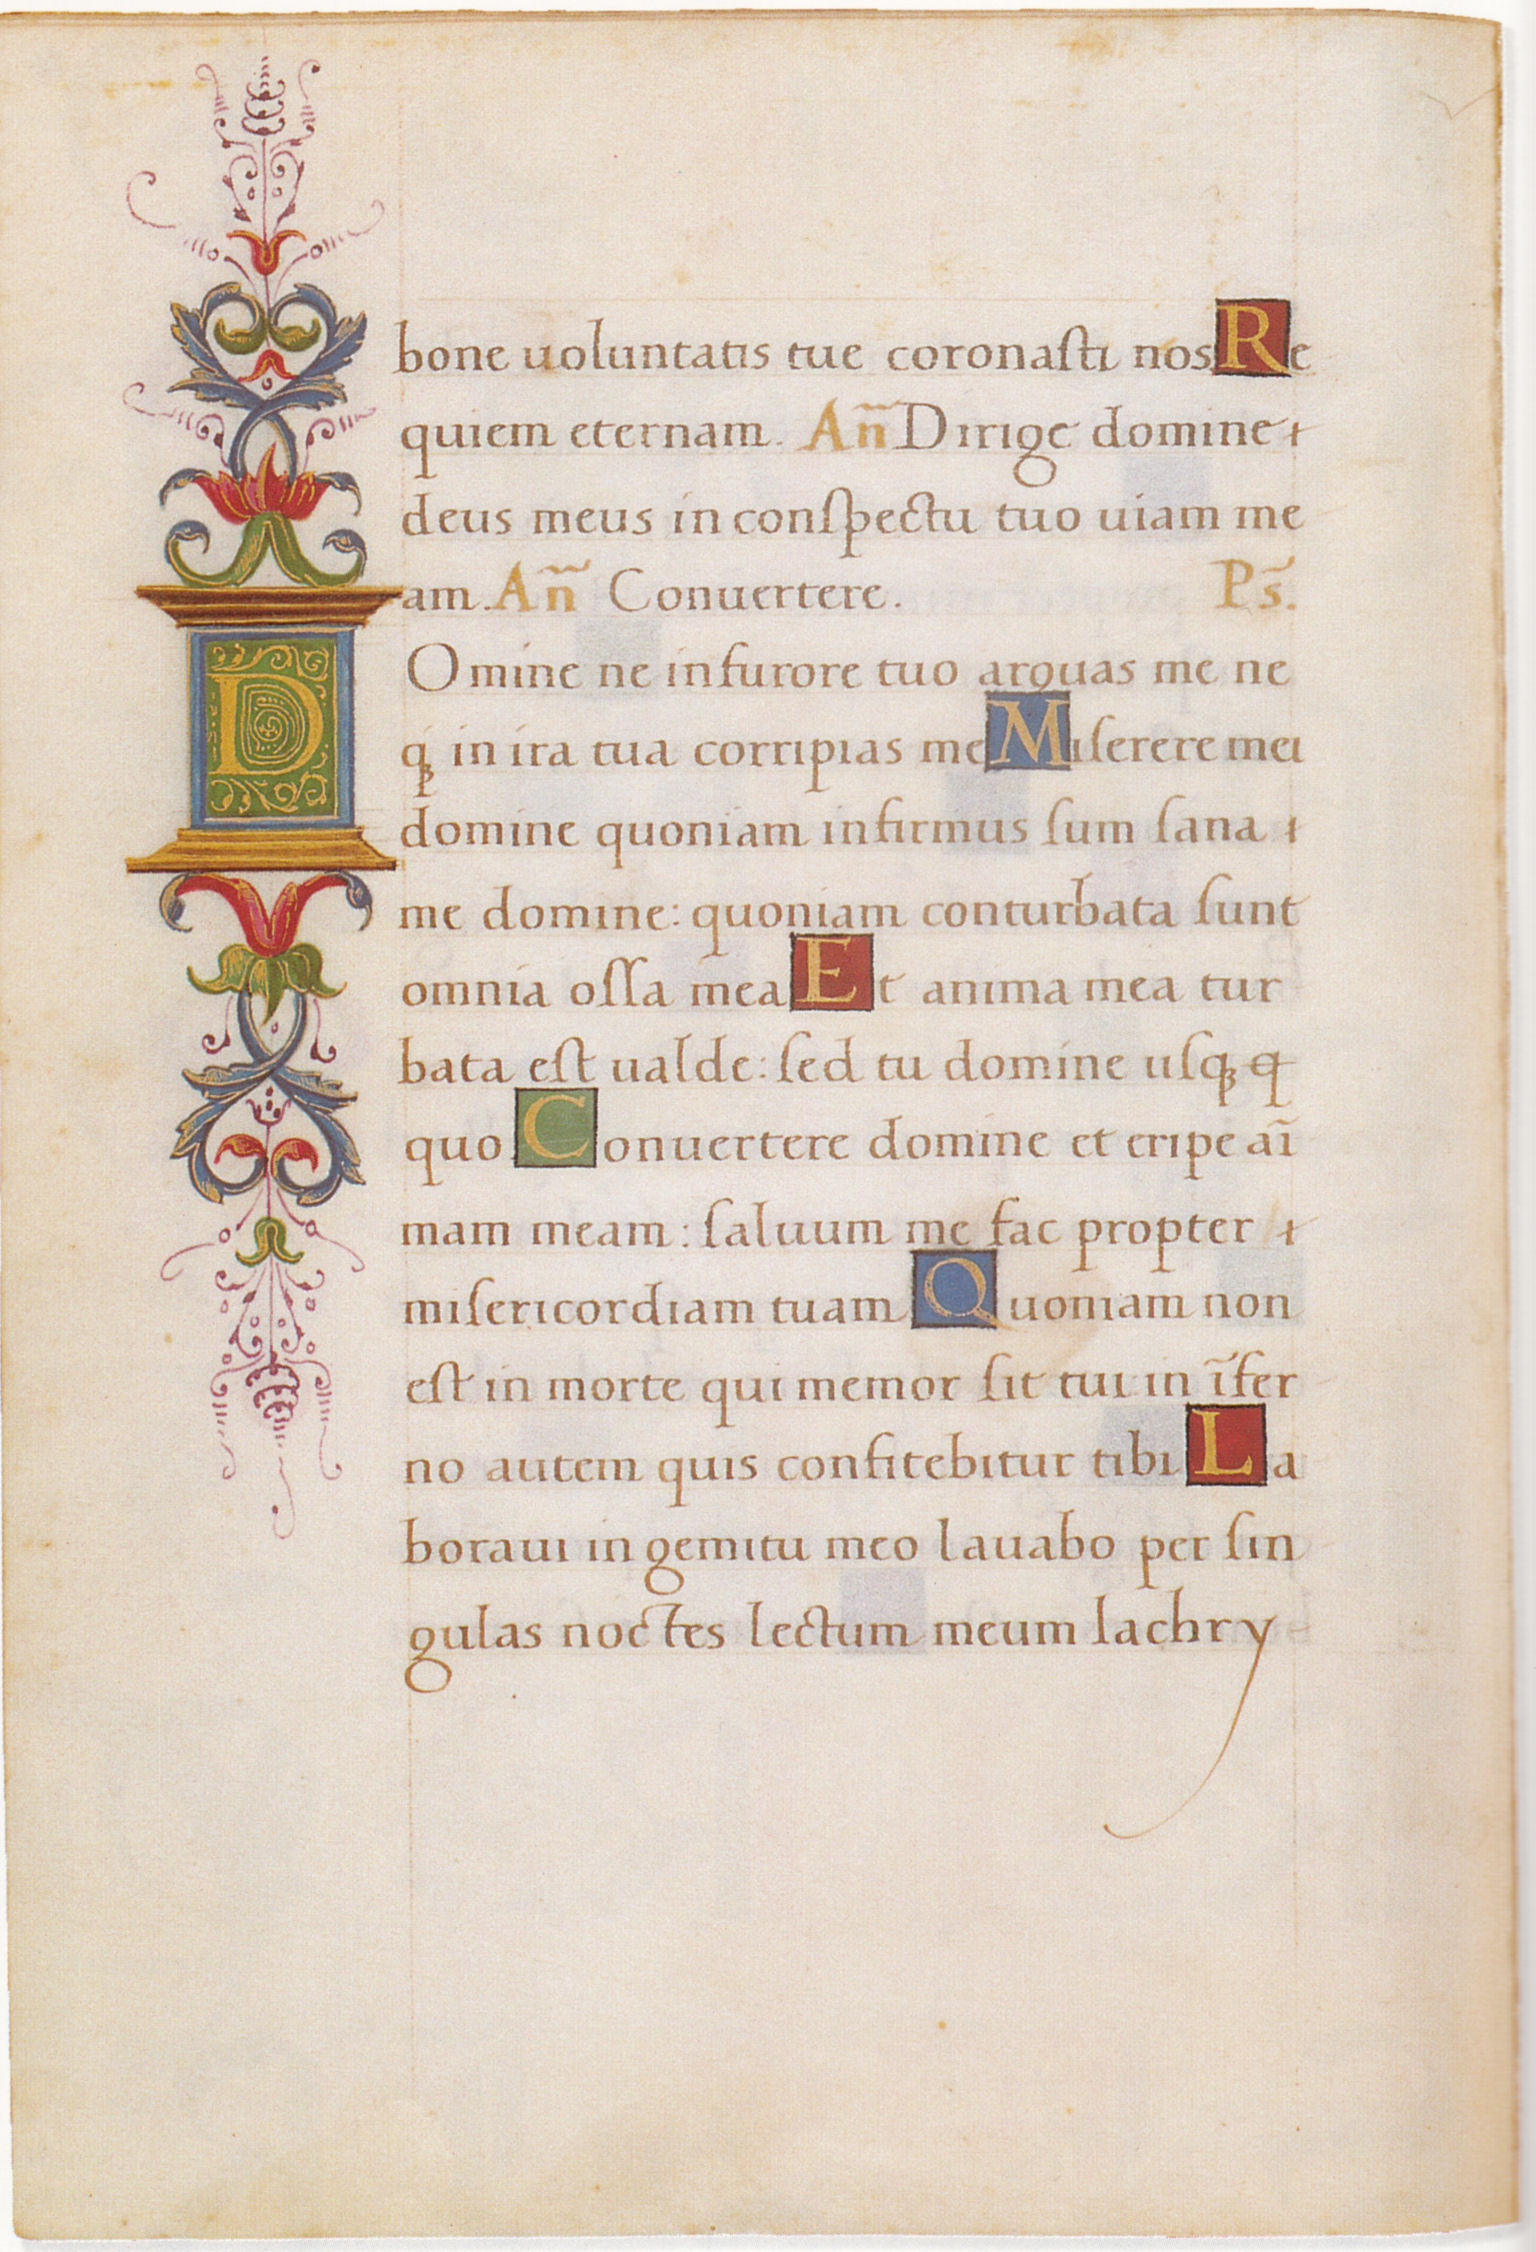 bone uoluntatis tue coronaſti nos Re
quiem eternam. An̄ Dirige domine
deus meus in conſpectu tuo uiam me
am. An̄ Conuertere. Ps̄.
DOmine ne in furore tuo arguas me ne
qꝫ in ira tua corripias me Miſerere mei
domine quoniam infirmus ſum ſana
me domine: quoniam conturbata ſunt
omnia oſſa mea Et anima mea tur
bata eſt ualde: ſed tu domine uſqꝫ ꝙ
quo Conuertere domine et eripe aī
mam meam: ſaluum me fac propter
miſericordiam tuam Quoniam non
eſt in morte qui memor ſit tui: in īfer
no autem quis confitebitur tibi La
boraui in gemitu meo lauabo per ſin
gulas noctes lectum meum lachry